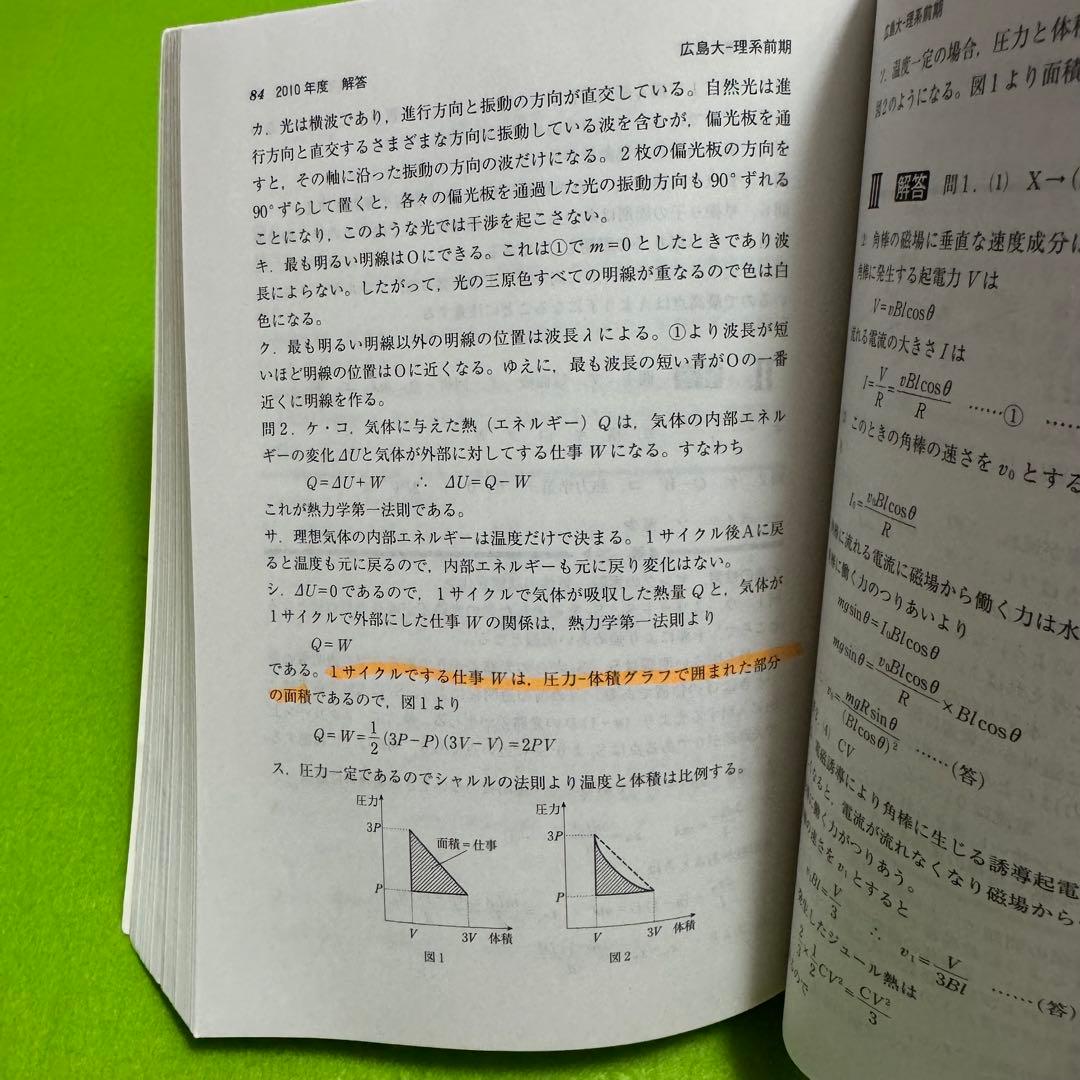 広島大-理系前期
84 2010年度 解答
カ．光は横波であり，進行方向と振動の方向が直交している。自然光は進
行方向と直交するさまざまな方向に振動している波を含むが，偏光板を通
すと，その軸に沿った振動の方向の波だけになる。2枚の偏光板の方向を
90°ずらして置くと，各々の偏光板を通過した光の振動方向も90°ずれる
ことになり，このような光では干渉を起こさない。
キ．最も明るい明線はOにできる。これは①でm=0としたときであり波
長によらない。したがって，光の三原色すべての明線が重なるので色は白
色になる。
ク．最も明るい明線以外の明線の位置は波長λによる。①より波長が短
いほど明線の位置はOに近くなる。ゆえに，最も波長の短い青がOの一番
近くに明線を作る。
問2．ケ・コ．気体に与えた熱（エネルギー）Qは，気体の内部エネル
ギーの変化ΔUと気体が外部に対してする仕事Wになる。すなわち
Q=ΔU+W ∴ ΔU=Q-W
これが熱力学第一法則である。
サ．理想気体の内部エネルギーは温度だけで決まる。1サイクル後Aに戻
ると温度も元に戻るので，内部エネルギーも元に戻り変化はない。
シ．ΔU=0であるので，1サイクルで気体が吸収した熱量Qと，気体が
1サイクルで外部にした仕事Wの関係は，熱力学第一法則より
Q=W
である。1サイクルでする仕事Wは，圧力-体積グラフで囲まれた部分
の面積であるので，図1より
Q=W=1/2(3P-P)(3V-V)=2PV
ス．圧力一定であるのでシャルルの法則より温度と体積は比例する。
圧力
3P
面積=仕事
P
V 3V 体積
図1
圧力
3P
P
V 3V 体積
図2
広島大-理系前期
温度一定の場合，圧力と体積
図2のようになる。図1より面積
Ⅲ 解答 問1．(1) X→(
角棒の磁場に垂直な速度成分は
角棒に発生する起電力Vは
V=vBlcosθ
流れる電流の大きさIは
I=V/R=vBlcosθ/R ……①
このときの角棒の速さをv₀とする
I₀=v₀Blcosθ/R
に流れる電流に磁場から働く力は水
に働く力のつりあいより
mgsinθ=I₀Blcosθ
mgsinθ=v₀Blcosθ/R×Blcosθ
v₀=mgRsinθ/(Blcosθ)² ……(答)
(4) CV
電磁誘導により角棒に生じる誘導起電
なると，電流が流れなくなり磁場から
働く力がつりあう。
の速さをv₁とすると
v₁Bl=V/3 ∴ v₁=V/3Bl ……(答)
発生したジュール熱は
2/3×1/2CV²=CV²/3
ので